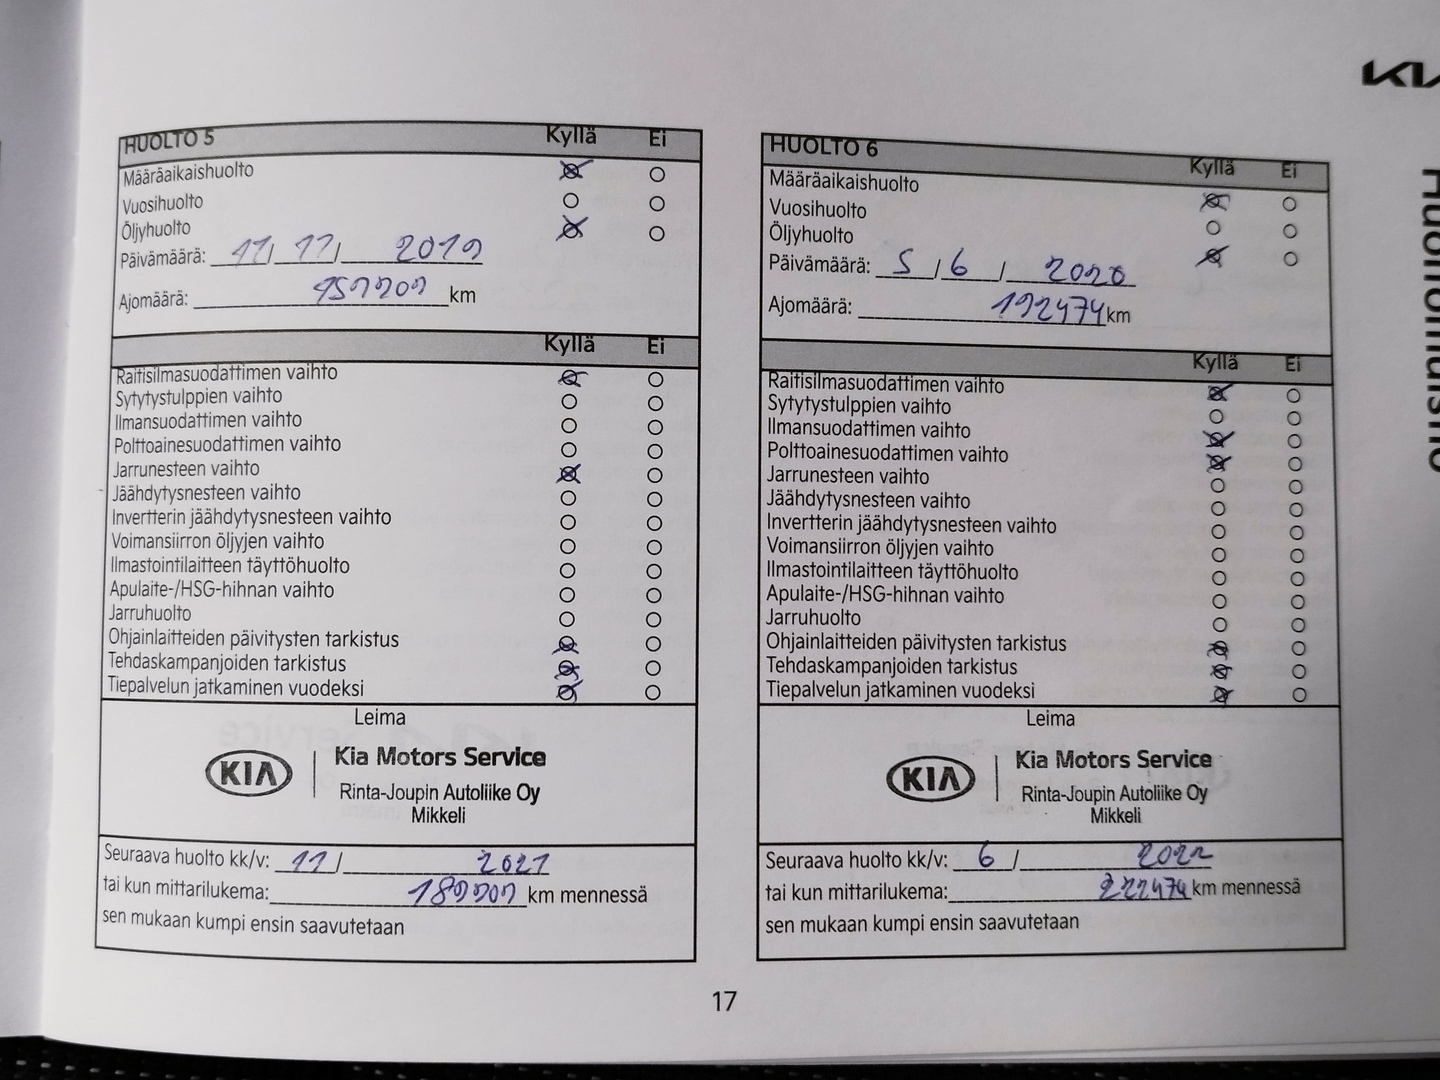 KIA
Huoltomuistio
HUOLTO 5 Kyllä Ei
Määräaikaishuolto
Vuosihuolto
Öljyhuolto
Päivämäärä: 11/11/ 2019
Ajomäärä: km
Kyllä Ei
Raitisilmasuodattimen vaihto
Sytytystulppien vaihto
Ilmansuodattimen vaihto
Polttoainesuodattimen vaihto
Jarrunesteen vaihto
Jäähdytysnesteen vaihto
Invertterin jäähdytysnesteen vaihto
Voimansiirron öljyjen vaihto
Ilmastointilaitteen täyttöhuolto
Apulaite-/HSG-hihnan vaihto
Jarruhuolto
Ohjainlaitteiden päivitysten tarkistus
Tehdaskampanjoiden tarkistus
Tiepalvelun jatkaminen vuodeksi
Leima
KIA Kia Motors Service
Rinta-Joupin Autoliike Oy
Mikkeli
Seuraava huolto kk/v: 11/ 2021
tai kun mittarilukema: km mennessä
sen mukaan kumpi ensin saavutetaan
HUOLTO 6 Kyllä Ei
Määräaikaishuolto
Vuosihuolto
Öljyhuolto
Päivämäärä: 5/6/ 2020
Ajomäärä: 192474 km
Kyllä Ei
Raitisilmasuodattimen vaihto
Sytytystulppien vaihto
Ilmansuodattimen vaihto
Polttoainesuodattimen vaihto
Jarrunesteen vaihto
Jäähdytysnesteen vaihto
Invertterin jäähdytysnesteen vaihto
Voimansiirron öljyjen vaihto
Ilmastointilaitteen täyttöhuolto
Apulaite-/HSG-hihnan vaihto
Jarruhuolto
Ohjainlaitteiden päivitysten tarkistus
Tehdaskampanjoiden tarkistus
Tiepalvelun jatkaminen vuodeksi
Leima
KIA Kia Motors Service
Rinta-Joupin Autoliike Oy
Mikkeli
Seuraava huolto kk/v: 6 / 2022
tai kun mittarilukema: 222474 km mennessä
sen mukaan kumpi ensin saavutetaan
17